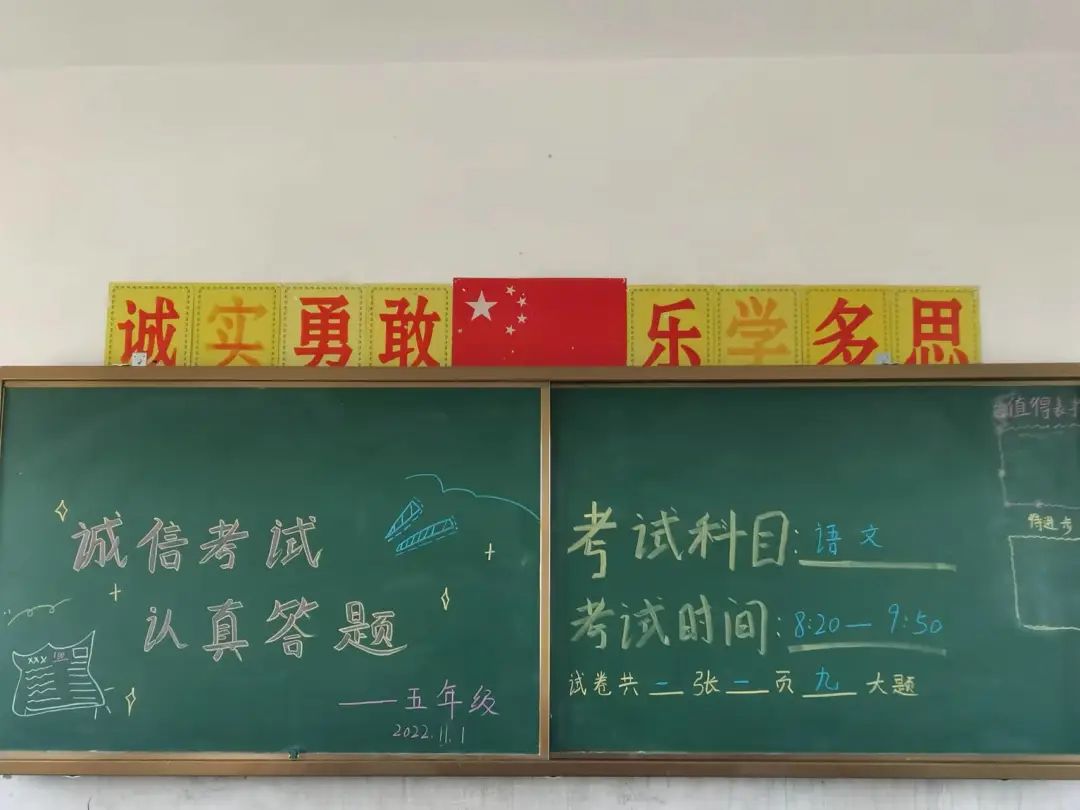 诚实勇敢 乐学多思
诚信考试
认真答题
——五年级
2022.11.1
考试科目:语文
考试时间:8:20—9:50
试卷共一张一页九大题
值得表